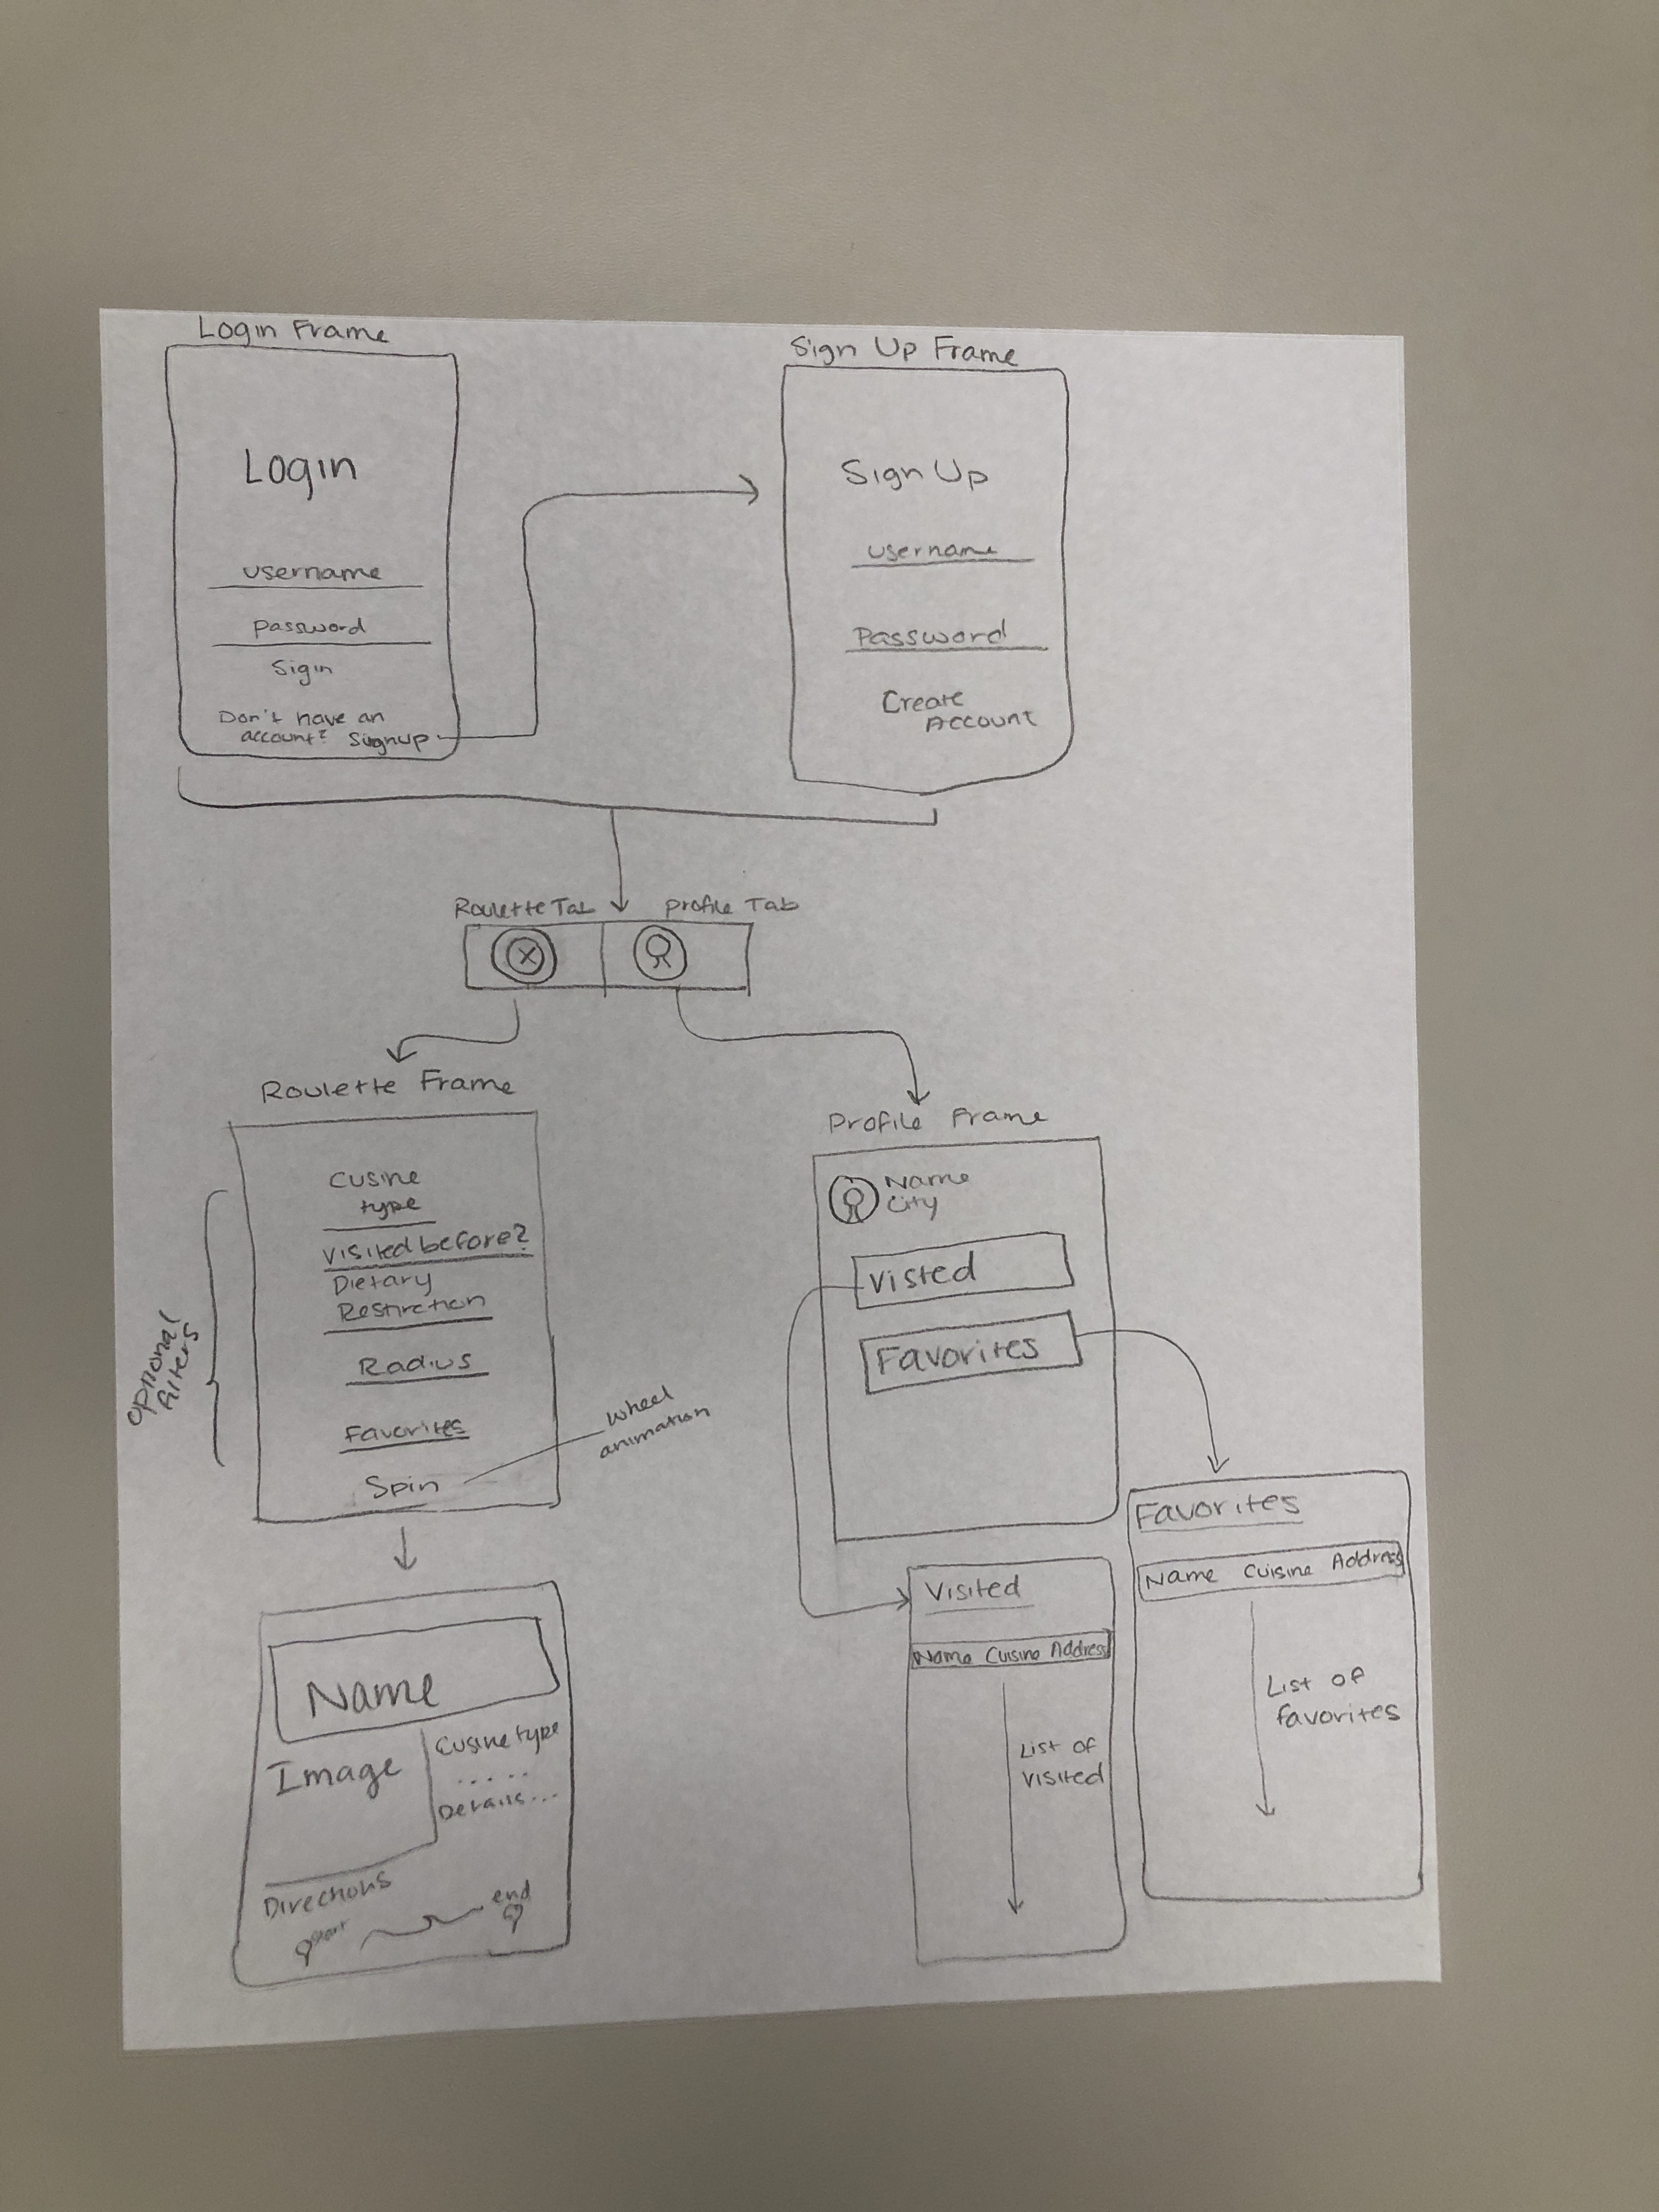 Login Frame
Login
username
password
Sigin
Don't have an
account? Signup
Sign Up Frame
Sign Up
username
Password
Create
Account
Roulette Tab
Profile Tab
Roulette Frame
Cusine
type
Visited before?
Dietary
Restirction
Radius
Favorites
Spin
optional
filters
wheel
animation
Name
Image
Cusine type
.....
Details...
Directions
start
end
Profile Frame
Name
City
Visted
Favorites
Visited
Name Cuisine Address
List of
visited
Favorites
Name Cuisine Address
List of
favorites